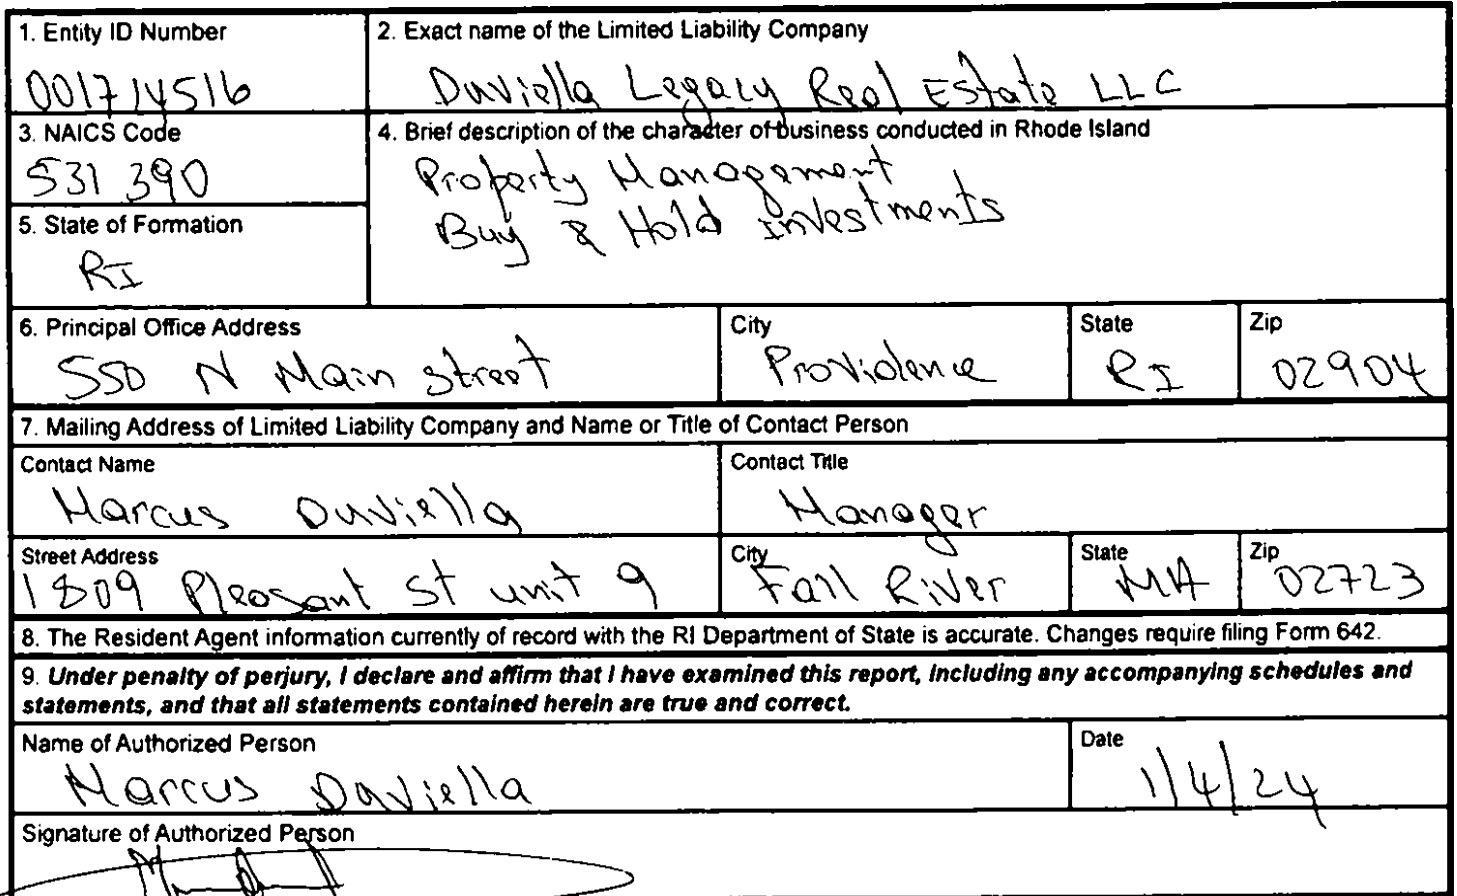 1. Entity ID Number
001714516
2. Exact name of the Limited Liability Company
Duviella Legacy Real Estate LLC
3. NAICS Code
531 390
4. Brief description of the character of business conducted in Rhode Island
Property Management
Buy & Hold Investments
5. State of Formation
RI
6. Principal Office Address
550 N Main street
City
Providence
State
RI
Zip
02904
7. Mailing Address of Limited Liability Company and Name or Title of Contact Person
Contact Name
Marcus Duviella
Contact Title
Manager
Street Address
1809 Pleasant St unit 9
City
Fall River
State
MA
Zip
02723
8. The Resident Agent information currently of record with the RI Department of State is accurate. Changes require filing Form 642.
9. Under penalty of perjury, I declare and affirm that I have examined this report, including any accompanying schedules and
statements, and that all statements contained herein are true and correct.
Name of Authorized Person
Marcus Duviella
Date
1/4/24
Signature of Authorized Person